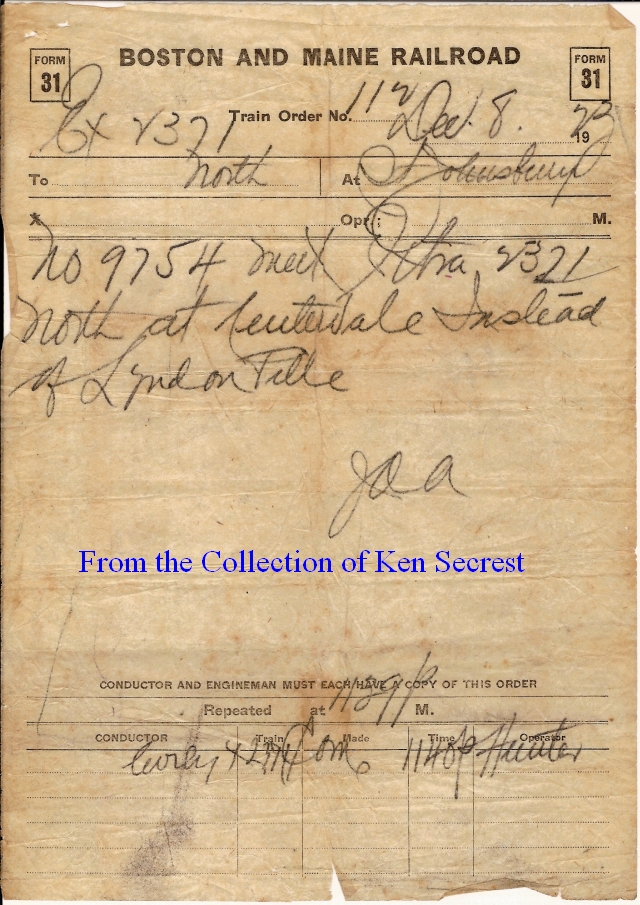 FORM 31 BOSTON AND MAINE RAILROAD FORM 31
Ex 2321 Train Order No. 112 Dec. 8. 1923
To North At St Johnsbury
X Opr.; M.
No 9754 meet Extra 2321
North at Centervale Instead
of Lyndon Ville
JAA
From the Collection of Ken Secrest
CONDUCTOR AND ENGINEMAN MUST EACH HAVE A COPY OF THIS ORDER
Repeated at 1139 P M.
CONDUCTOR Train Made Time Operator
Com 1140P Hunter